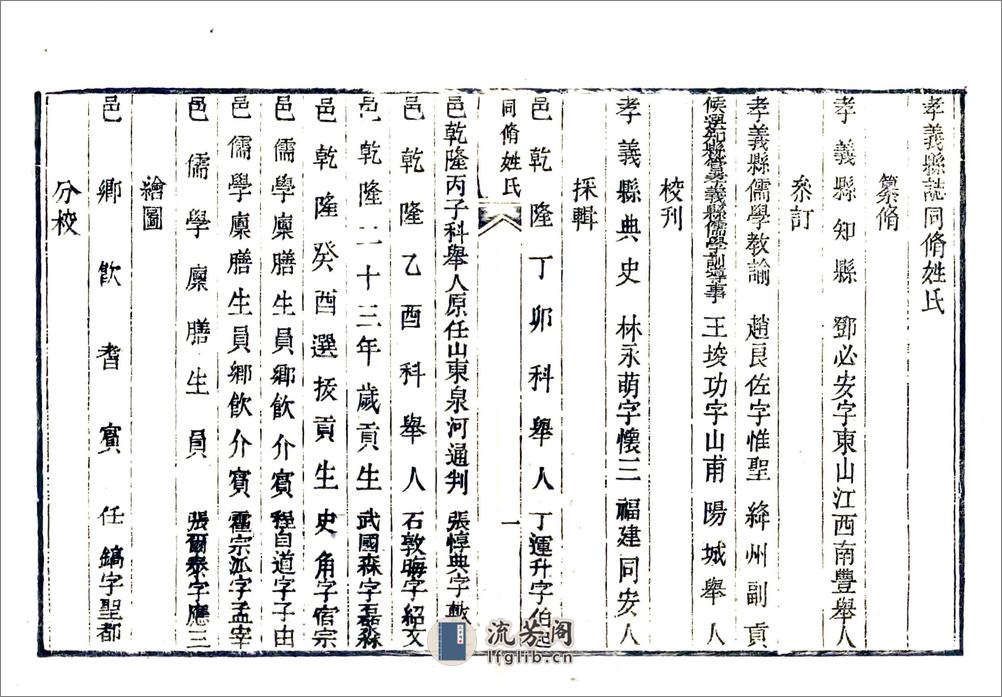 孝義縣誌同脩姓氏
纂脩
孝義縣知縣 鄧必安字東山江西南豐舉人
叅訂
孝義縣儒學教諭 趙良佐字惟聖 絳州副貢
候選知縣管孝義縣儒學訓導事 王埈功字山甫 陽城舉人
校刊
孝義縣典史 林永萌字懷三 福建同安人
採輯
邑乾隆丁卯科舉人 丁運升字伯
同脩姓氏 一
邑乾隆丙子科舉人原任山東泉河通判 張惇典字敷
邑乾隆乙酉科舉人 石敦晦字紹文
邑乾隆二十三年歲貢生 武國森字磊淼
邑乾隆癸酉選拔貢生 史角字宿宗
邑儒學廩膳生員鄉飲介賓 程自道字子由
邑儒學廩膳生員鄉飲介賓 霍宗泒字孟宰
邑儒學廩膳生員 張爾泰字應三
繪圖
邑鄉飲耆賓 任鎬字聖都
分校
流芳阁
lfglib.cn